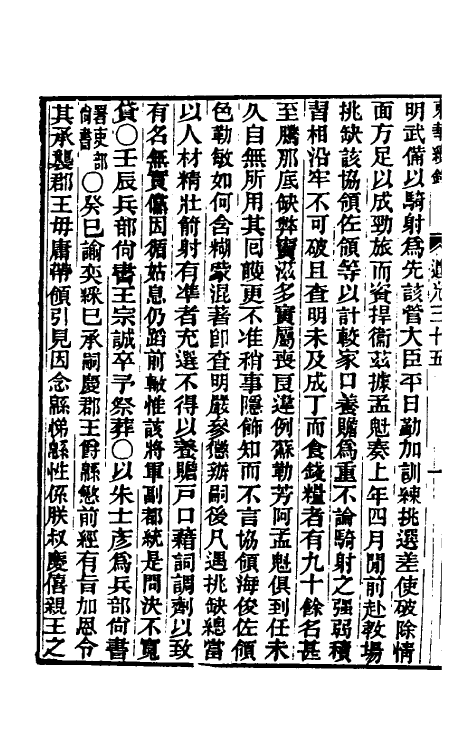 東華續錄 道光三十五 一
明武備以騎射爲先該管大臣平日勤加訓練挑選差使破除情
面方足以成勁旅而資捍衞茲據孟魁奏上年四月閒前赴教場
挑缺該協領佐領等以計較家口養贍爲重不論騎射之强弱積
習相沿牢不可破且查明未及成丁而食錢糧者有九十餘名甚
至騰那底缺弊竇滋多實屬喪良違例蘇勒芳阿孟魁俱到任未
久自無所用其回護更不准稍事隱飾知而不言協領海俊佐領
色勒敏如何含糊蒙混著卽查明嚴參懲辦嗣後凡遇挑缺總當
以人材精壯箭射有凖者充選不得以養贍戶口藉詞調劑以致
有名無實儻因循姑息仍蹈前轍惟該將軍副都統是問決不寬
貸〇壬辰兵部尙書王宗誠卒予祭葬〇以朱士彥爲兵部尙書
署吏部尙書〇癸巳諭奕綵已承嗣慶郡王爵緜慜前經有旨加恩令
其承襲郡王毋庸帶領引見因念緜悌緜性係朕叔慶僖親王之